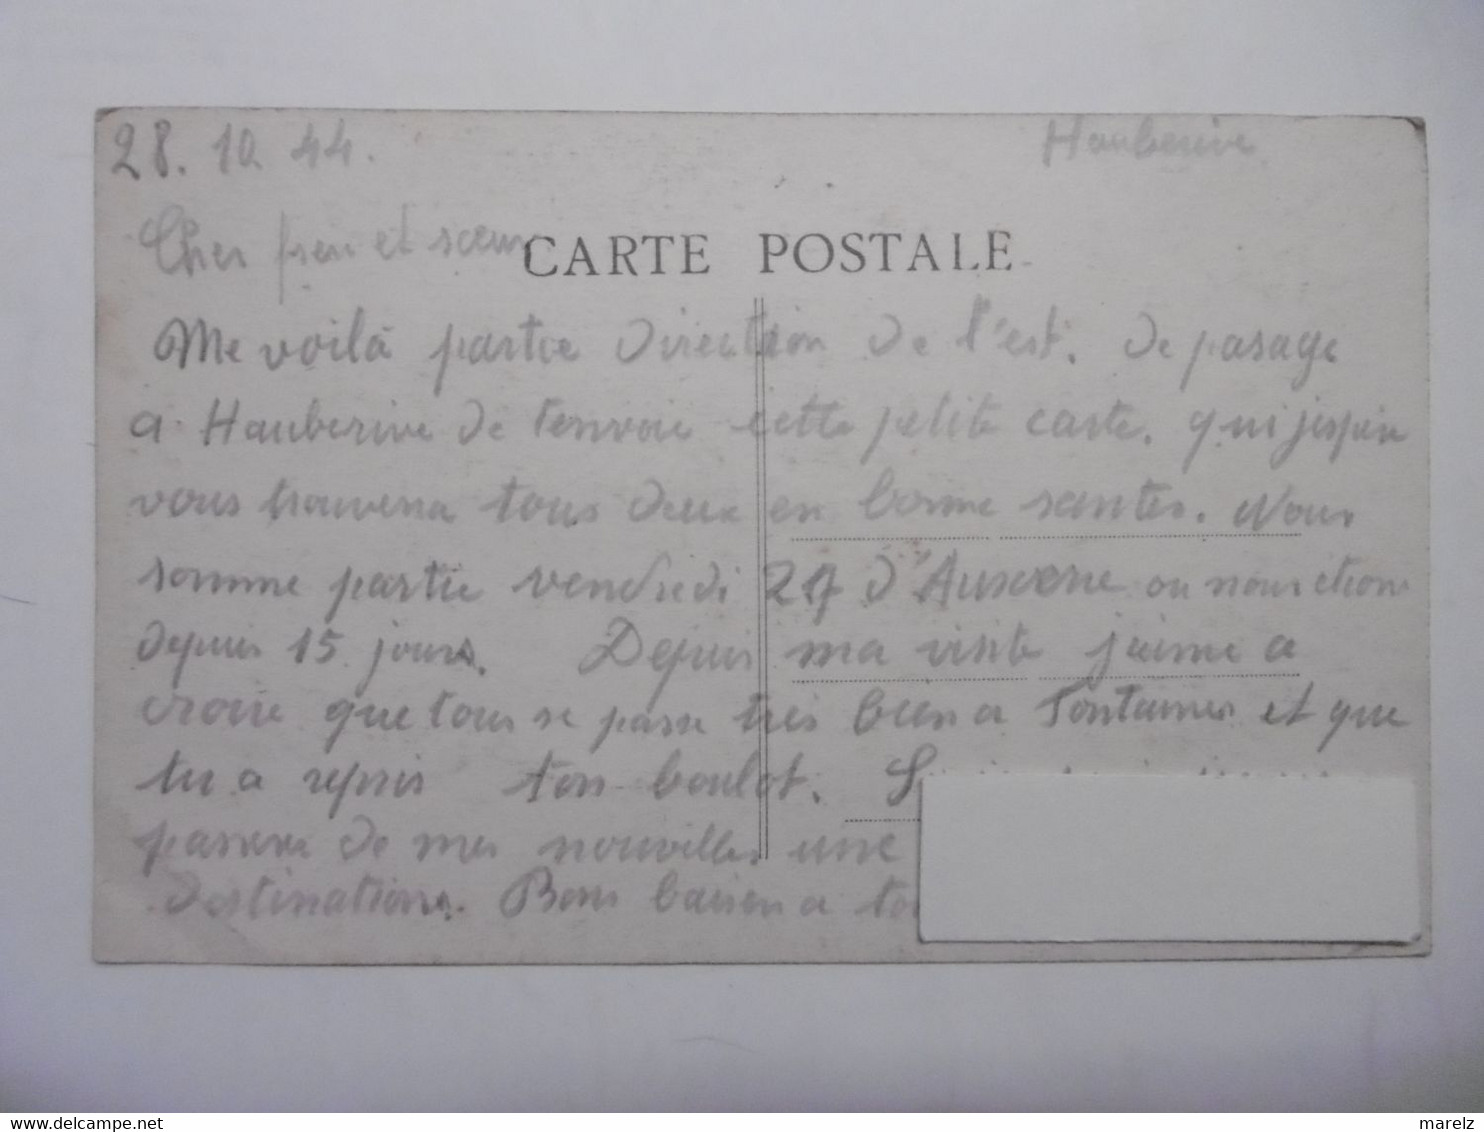 28. 10 44.
Hauberive
Cher frere et sœur
CARTE POSTALE
Me voilà partie direction de l'est. de pasage
a Hauberive de t'envoie cette petite carte. qui j'espère
vous trouvera tous deux en bonne santer. Nous
somme partie vendredi 27 d'Auxerre ou nous étions
depuis 15 jours. Depuis ma visite j'aime a
croire que tous se passe très bien a Fontaines et que
tu a repris ton boulot. S
passera de mes nouvelles une
destinations. Bons baisers a to
marelz